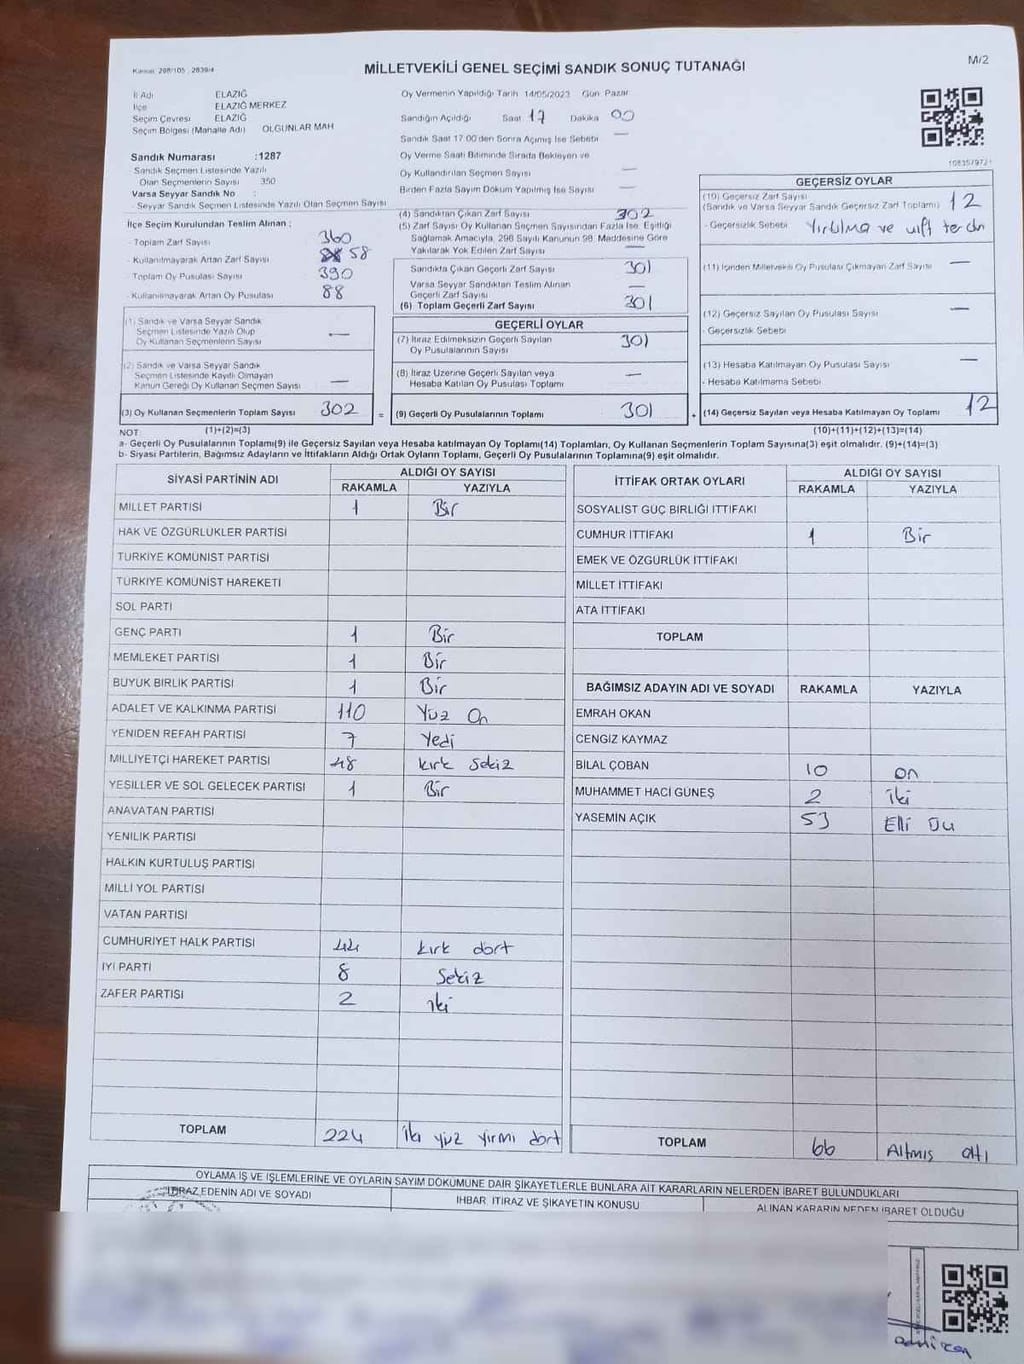 Kanun: 298/105 ; 2839/4
MİLLETVEKİLİ GENEL SEÇİMİ SANDIK SONUÇ TUTANAĞI
M/2
İl Adı ELAZIĞ
İlçe ELAZIĞ MERKEZ
Seçim Çevresi ELAZIĞ
Seçim Bölgesi (Mahalle Adı) OLGUNLAR MAH
Sandık Numarası :1287
Sandık Seçmen Listesinde Yazılı
Olan Seçmenlerin Sayısı 350
Varsa Seyyar Sandık No :
- Seyyar Sandık Seçmen Listesinde Yazılı Olan Seçmen Sayısı
Oy Vermenin Yapıldığı Tarih 14/05/2023 Gün Pazar
Sandığın Açıldığı Saat 17 Dakika 00
Sandık Saat 17.00'den Sonra Açılmış İse Sebebi —
Oy Verme Saati Bitiminde Sırada Bekleyen ve
Oy Kullandırılan Seçmen Sayısı —
Birden Fazla Sayım Döküm Yapılmış İse Sayısı —
İlçe Seçim Kurulundan Teslim Alınan ;
- Toplam Zarf Sayısı 360
- Kullanılmayarak Artan Zarf Sayısı 58
- Toplam Oy Pusulası Sayısı 390
- Kullanılmayarak Artan Oy Pusulası 88
(1) Sandık ve Varsa Seyyar Sandık
Seçmen Listesinde Yazılı Olup
Oy Kullanan Seçmenlerin Sayısı —
(2) Sandık ve Varsa Seyyar Sandık
Seçmen Listesinde Kayıtlı Olmayan
Kanun Gereği Oy Kullanan Seçmen Sayısı —
(3) Oy Kullanan Seçmenlerin Toplam Sayısı 302 =
(4) Sandıktan Çıkan Zarf Sayısı 302
(5) Zarf Sayısı Oy Kullanan Seçmen Sayısından Fazla İse, Eşitliği
Sağlamak Amacıyla, 298 Sayılı Kanunun 98. Maddesine Göre
Yakılarak Yok Edilen Zarf Sayısı —
Sandıkta Çıkan Geçerli Zarf Sayısı 301
Varsa Seyyar Sandıktan Teslim Alınan
Geçerli Zarf Sayısı —
(6) Toplam Geçerli Zarf Sayısı 301
GEÇERLİ OYLAR
(7) İtiraz Edilmeksizin Geçerli Sayılan
Oy Pusulalarının Sayısı 301
(8) İtiraz Üzerine Geçerli Sayılan veya
Hesaba Katılan Oy Pusulası Toplamı —
(9) Geçerli Oy Pusulalarının Toplamı 301 +
GEÇERSİZ OYLAR
(10) Geçersiz Zarf Sayısı
(Sandık ve Varsa Seyyar Sandık Geçersiz Zarf Toplamı) 12
- Geçersizlik Sebebi Yırtılma ve
(11) İçinden Milletvekili Oy Pusulası Çıkmayan Zarf Sayısı —
(12) Geçersiz Sayılan Oy Pusulası Sayısı —
- Geçersizlik Sebebi
(13) Hesaba Katılmayan Oy Pusulası Sayısı —
- Hesaba Katılmama Sebebi
(14) Geçersiz Sayılan veya Hesaba Katılmayan Oy Toplamı 12
NOT: (1)+(2)=(3) (10)+(11)+(12)+(13)=(14)
a- Geçerli Oy Pusulalarının Toplamı(9) ile Geçersiz Sayılan veya Hesaba katılmayan Oy Toplamı(14) Toplamları, Oy Kullanan Seçmenlerin Toplam Sayısına(3) eşit olmalıdır. (9)+(14)=(3)
b- Siyasi Partilerin, Bağımsız Adayların ve İttifakların Aldığı Ortak Oyların Toplamı, Geçerli Oy Pusulalarının Toplamına(9) eşit olmalıdır.
SİYASİ PARTİNİN ADI ALDIĞI OY SAYISI
RAKAMLA YAZIYLA
MİLLET PARTİSİ 1 Bir
HAK VE ÖZGÜRLÜKLER PARTİSİ
TÜRKİYE KOMÜNİST PARTİSİ
TÜRKİYE KOMÜNİST HAREKETİ
SOL PARTİ
GENÇ PARTİ 1 Bir
MEMLEKET PARTİSİ 1 Bir
BÜYÜK BİRLİK PARTİSİ 1 Bir
ADALET VE KALKINMA PARTİSİ 110 Yüz On
YENİDEN REFAH PARTİSİ 7 Yedi
MİLLİYETÇİ HAREKET PARTİSİ 48 kırk sekiz
YEŞİLLER VE SOL GELECEK PARTİSİ 1 Bir
ANAVATAN PARTİSİ
YENİLİK PARTİSİ
HALKIN KURTULUŞ PARTİSİ
MİLLİ YOL PARTİSİ
VATAN PARTİSİ
CUMHURİYET HALK PARTİSİ 44 kırk dört
İYİ PARTİ 8 Sekiz
ZAFER PARTİSİ 2 iki
TOPLAM 224 İki yüz yirmi dört
İTTİFAK ORTAK OYLARI ALDIĞI OY SAYISI
RAKAMLA YAZIYLA
SOSYALİST GÜÇ BİRLİĞİ İTTİFAKI
CUMHUR İTTİFAKI 1 Bir
EMEK VE ÖZGÜRLÜK İTTİFAKI
MİLLET İTTİFAKI
ATA İTTİFAKI
TOPLAM
BAĞIMSIZ ADAYIN ADI VE SOYADI RAKAMLA YAZIYLA
EMRAH OKAN
CENGİZ KAYMAZ
BİLAL ÇOBAN 10 on
MUHAMMET HACI GÜNEŞ 2 İki
YASEMİN AÇIK 53 Elli
TOPLAM 66 Altmış altı
OYLAMA İŞ VE İŞLEMLERİNE VE OYLARIN SAYIM DÖKÜMÜNE DAİR ŞİKAYETLERLE BUNLARA AİT KARARLARIN NELERDEN İBARET BULUNDUKLARI
İTİRAZ EDENİN ADI VE SOYADI İHBAR, İTİRAZ VE ŞİKAYETİN KONUSU ALINAN KARARIN NEDEN İBARET OLDUĞU